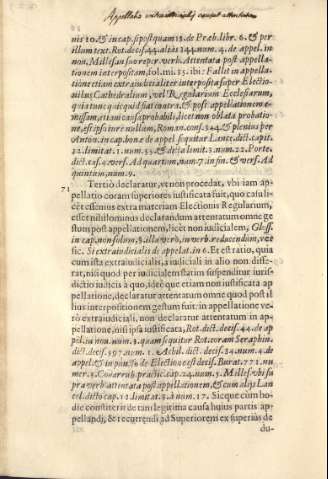 Appellatio extraiudicialis causat attentatum
nis 10. & in cap. si postquam 15. de Præb. lib. 6. & per
illum text. Rot. decis. 44. aliàs 144. num. 4. de appel. in
non. Milles. in suo reper. verb. Attentata post appella-
tionem interpositam, fol. mi. 35. ibi: Fallit in appella-
tione etiam extraiudicialiter interposita super Electio-
nibus Cathedralium, vel Regularium Ecclesiarum,
quia tunc quicquid fiat contra, & post appellationem e-
missam, etiam causa probabili, licet non oblata probatio-
ne, est ipso iure nullum, Roman. cons. 324. & plenius per
Anton. in cap. bonæ de appel. sequitur Lance. dict. cap. 12.
12. limitat. 1. num. 53. & dicta limit. 3. num. 22. Porte.
dict. cas. 4. vers. Ad quartum, num. 7. in fin. & vers. Ad
quintum, num. 9.
71 Tertiò declaratur, vt non procedat, vbi iam ap-
pellatio coram superiores iustificata fuit, quo casu li-
cèt essemus extra materiam Electionis Regularium,
esset nihilominus declarandum attentatum omne ge
stum post appellationem, licèt non iudicialem, Gloss.
in cap. non solùm, §. illa verò, in verb. reducendum, ver-
sic. Si extraiudicialis de appellat. in 6. Et est ratio, quia
cum ista extraiudicialis, à iudiciali in alio non diffe-
rat, nisi quod per iudicialem statim suspenditur iuris-
dictio iudicis à quo, ideò que etiam non iustificata ap
pellatione, declaratur attentatum omne quod post il
lius interpositionem gestum fuit: in appellatione ve-
rò extraiudiciali, non declaratur attentatum in ap-
pellatione, nisi ipsa iustificata, Rot. dict. decis. 44. de ap
pel. in non. num. 3. quam sequitur Rot. coram Seraphin.
dict. decis. 597. num. 1. Achil. dict. decis. 34. num. 4. de
appel. & in puncto de Electione est decis. Burat. 771. nu-
mer. 3. Couarrub. practic. cap. 24. num. 5. Milles. vbi su
pra verb. attentata post appellationem, & cum alijs Lan
cel. dicto cap. 12. limitat. 3. à num. 17. Sicque cum ho-
die constiterit de tam legitima causa huius partis ap-
pellandi, & recurrendi ad Superiorem ex superiùs de
du-